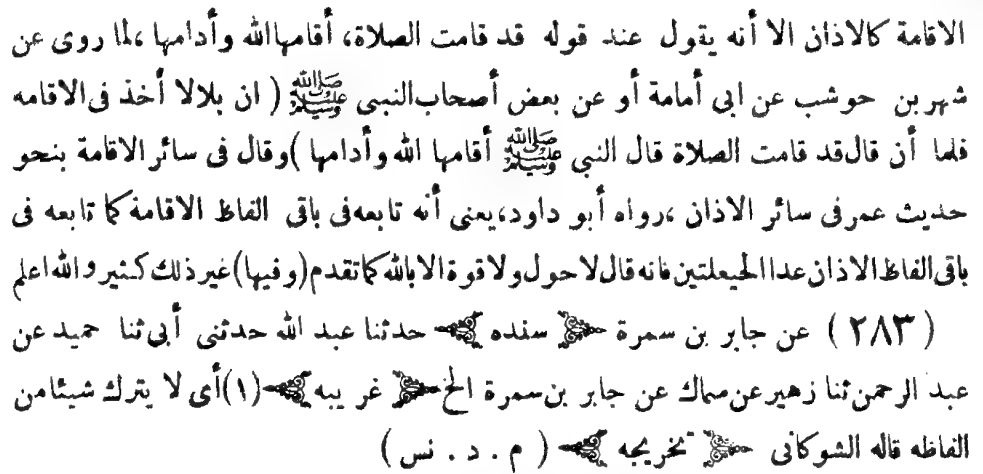 الاقامة كالاذان الا أنه يقول عند قوله قد قامت الصلاة، أقامها الله وأدامها ،لما روى عن
شهر بن حوشب عن ابى أمامة أو عن بعض أصحاب النبى ﷺ ( ان بلالا أخذ فى الاقامه
فلما أن قال قد قامت الصلاة قال النبي ﷺ أقامها الله وأدامها )وقال فى سائر الاقامة بنحو
حديث عمر فى سائر الاذان ،رواه أبو داود،يعنى أنه تابعه فى باقى الفاظ الاقامة كما تابعه فى
باقى الفاظ الاذان عدا الحيعلتين فانه قال لاحول ولا قوة الا بالله كما تقدم (وفيها) غير ذلك كثير والله اعلم
( ٢٨٣ ) عن جابر بن سمرة سنده حدثنا عبد الله حدثنى أبى ثنا حميد عن
عبد الرحمن ثنا زهير عن سماك عن جابر بن سمرة الخ غريبه (١) أى لا يترك شيئا من
الفاظه قاله الشوكانى تخريجه ( م . د . نس )